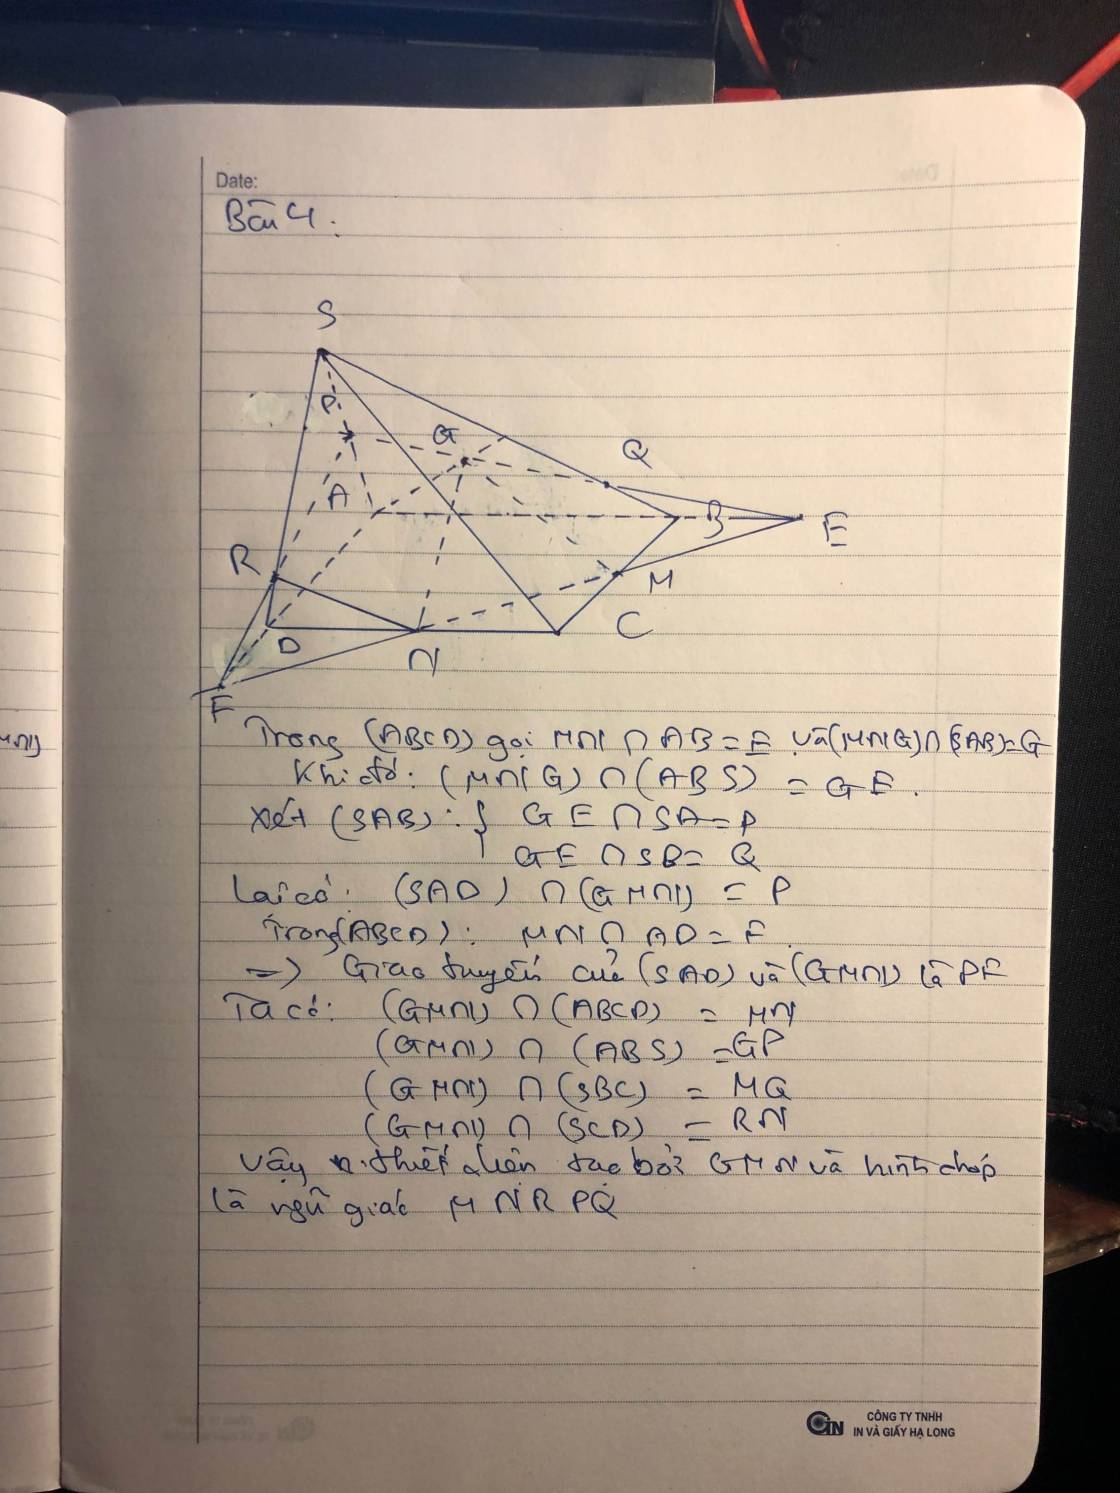 Date:
Bài 4:
S
P
G
Q
A
B
E
R
M
D
C
N
F
MN)
Trong (ABCD) gọi MN ∩ AB = E và (MNG) ∩ (SAB) = G
Khi đó: (MNG) ∩ (ABS) = GE.
Xét (SAB): { GE ∩ SA = P
GE ∩ SB = Q
Lại có: (SAD) ∩ (GMN) = P
Trong (ABCD): MN ∩ AD = F.
=> Giao tuyến của (SAD) và (GMN) là PF
Ta có: (GMN) ∩ (ABCD) = MN
(GMN) ∩ (ABS) = GP
(GMN) ∩ (SBC) = MQ
(GMN) ∩ (SCD) = RN
Vậy thiết diện tạo bởi GMN và hình chóp
là ngũ giác MNRPQ
CÔNG TY TNHH
IN VÀ GIẤY HẠ LONG